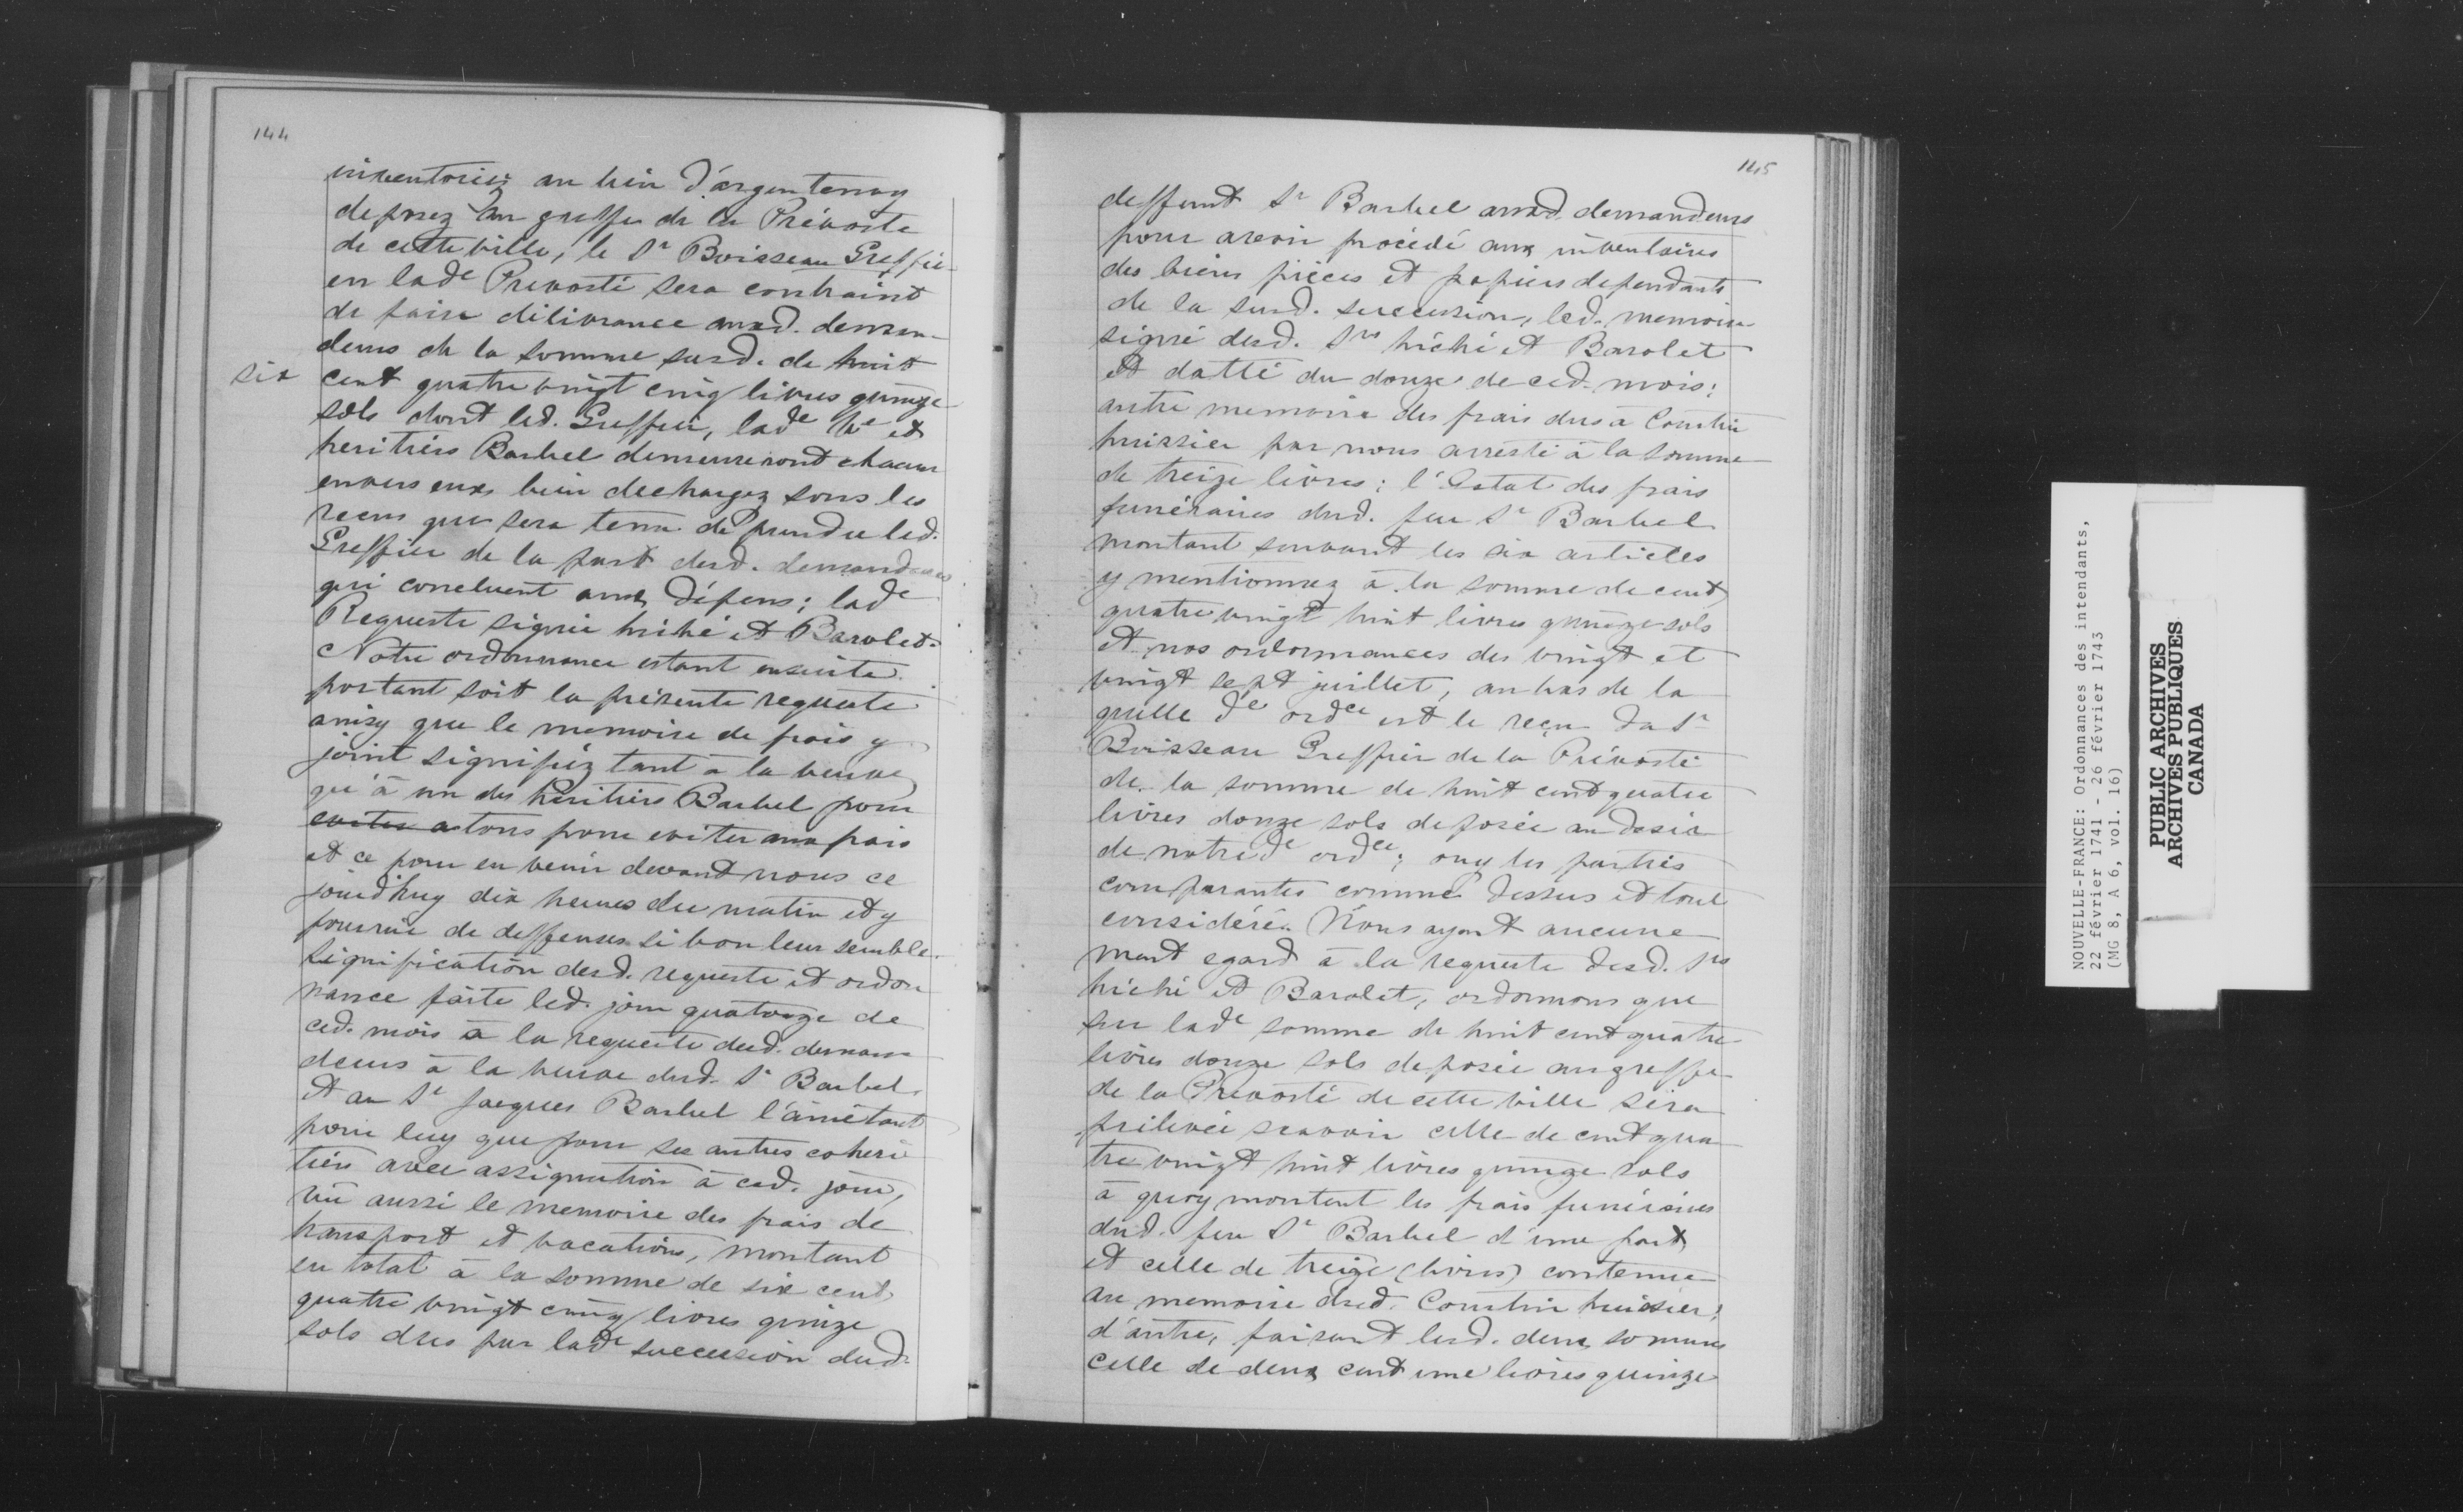 144
inventoriez au lieu d'argentenay
deposez au greffe de la Prévosté
de cette ville, le Sr Boisseau Greffier
en lade Prevosté sera contraint
de faire délivrance auxd. deman-
deurs de la somme susd. de huit
six cent quatre vingt cinq livres quinze
sols dont led. Greffier, lade Ve et
heritiers Barbel demeureront chacun
envers eux bien dechargez sous les
recus que sera tenu de prendre led.
Greffier de la part desd. demandeurs
qui concluent aux dépens; lade
Requeste signée hiché et Barolet.
Notre ordonnance estant ensuite
portant soit la présente requeste
ainsy que le memoire de frais y
joint signifiéz tant à la veuve
qu'à un des héritiers Barbel pour
eviter a tous pour eviter aux frais
et ce pour en venir devant nous ce
jourd'huy dix heures du matin et y
fournir de deffenses si bon leur semble.
Signification desd. requeste et ordon
nance faite led. jour quatorze de
ced. mois à la requeste desd. deman
deurs à la veuve dud. Sr Barbel
et au Sr Jacques Barbel l'ainé tant
pour luy que pour ses autres coheri
tiers avec assignation à ced. jour,
vû aussi le memoire des frais de
transport et vacations, montant
en total à la somme de six cent
quatre vingt cinq livres quinze
sols dues par lade succession dud.
145
deffunt Sr Barbel auxd. demandeurs
pour avoir procédé aux inventaires
des biens pièces et papiers dependants
de la susd. succession, led. memoire
signé desd. Srs hiché et Barolet
et datté du douze de ced. mois;
autre memoire des frais dus à Courtin
huissier par nous arresté à la somme
de treize livres; l'Estat des frais
funéraires dud. feu Sr Barbel
montant suivant les six articles
y mentionnez à la somme de cent
quatre vingt huit livres quinze sols
et nos ordonnances des vingt et
vingt sept juillet, au bas de la
quelle de ordce est le reçu du Sr
Boisseau Greffier de la Prévosté
de la somme de huit cent quatre
livres douze sols deposée au desir
de notre de ordce; ouy les parties
comparantes comme dessus et tout
considéré. Nous ayant aucune
ment egard à la requeste desd. Srs
hiché et Barolet, ordonnons que
sur lade somme de huit cent quatre
livres douze sols deposée au greffe
de la Prevosté de cette ville sera
prélevée scavoir celle de cent qua
tre vingt huit livres quinze sols
à quoy montent les frais funéraires
dud. feu Sr Barbel d'une part
et celle de treize (livres) contenue
au memoire dud. Courtin huissier;
d'autre, faisant lesd. deux sommes
celle de deux cent une livres quinze
NOUVELLE-FRANCE: Ordonnances des intendants,
22 février 1741 - 26 février 1743
(MG 8, A 6, vol. 16)
PUBLIC ARCHIVES
ARCHIVES PUBLIQUES
CANADA